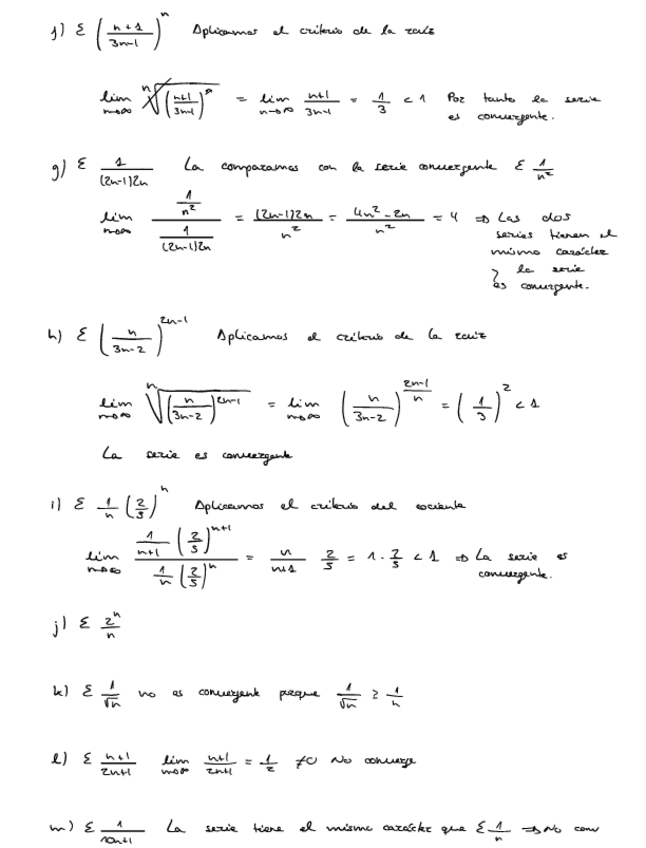 f) Σ ((n+1)/(3n-1))^n Aplicamos el criterio de la raíz
lim n→∞ ⁿ√(((n+1)/(3n-1))^n) = lim n→∞ (n+1)/(3n-1) = 1/3 < 1 Por tanto la serie
es convergente.
g) Σ 1/((2n-1)2n) La comparamos con la serie convergente Σ 1/n²
lim n→∞ (1/n²)/(1/((2n-1)2n)) = ((2n-1)2n)/n² = (4n²-2n)/n² = 4 ⇒ Las dos
series tienen el
mismo carácter
y la serie
es convergente.
h) Σ (n/(3n-2))^(2n-1) Aplicamos el criterio de la raíz
lim n→∞ ⁿ√((n/(3n-2))^(2n-1)) = lim n→∞ (n/(3n-2))^((2n-1)/n) = (1/3)² < 1
La serie es convergente
i) Σ 1/n (2/5)^n Aplicamos el criterio del cociente
lim n→∞ (1/(n+1) (2/5)^(n+1))/(1/n (2/5)^n) = n/(n+1) 2/5 = 1 · 2/5 < 1 ⇒ La serie es
convergente.
j) Σ 2^n/n
k) Σ 1/√n no es convergente porque 1/√n ≥ 1/n
l) Σ (n+1)/(2n+1) lim n→∞ (n+1)/(2n+1) = 1/2 ≠0 No converge
m) Σ 1/(10n+1) La serie tiene el mismo carácter que Σ 1/n ⇒ No conv